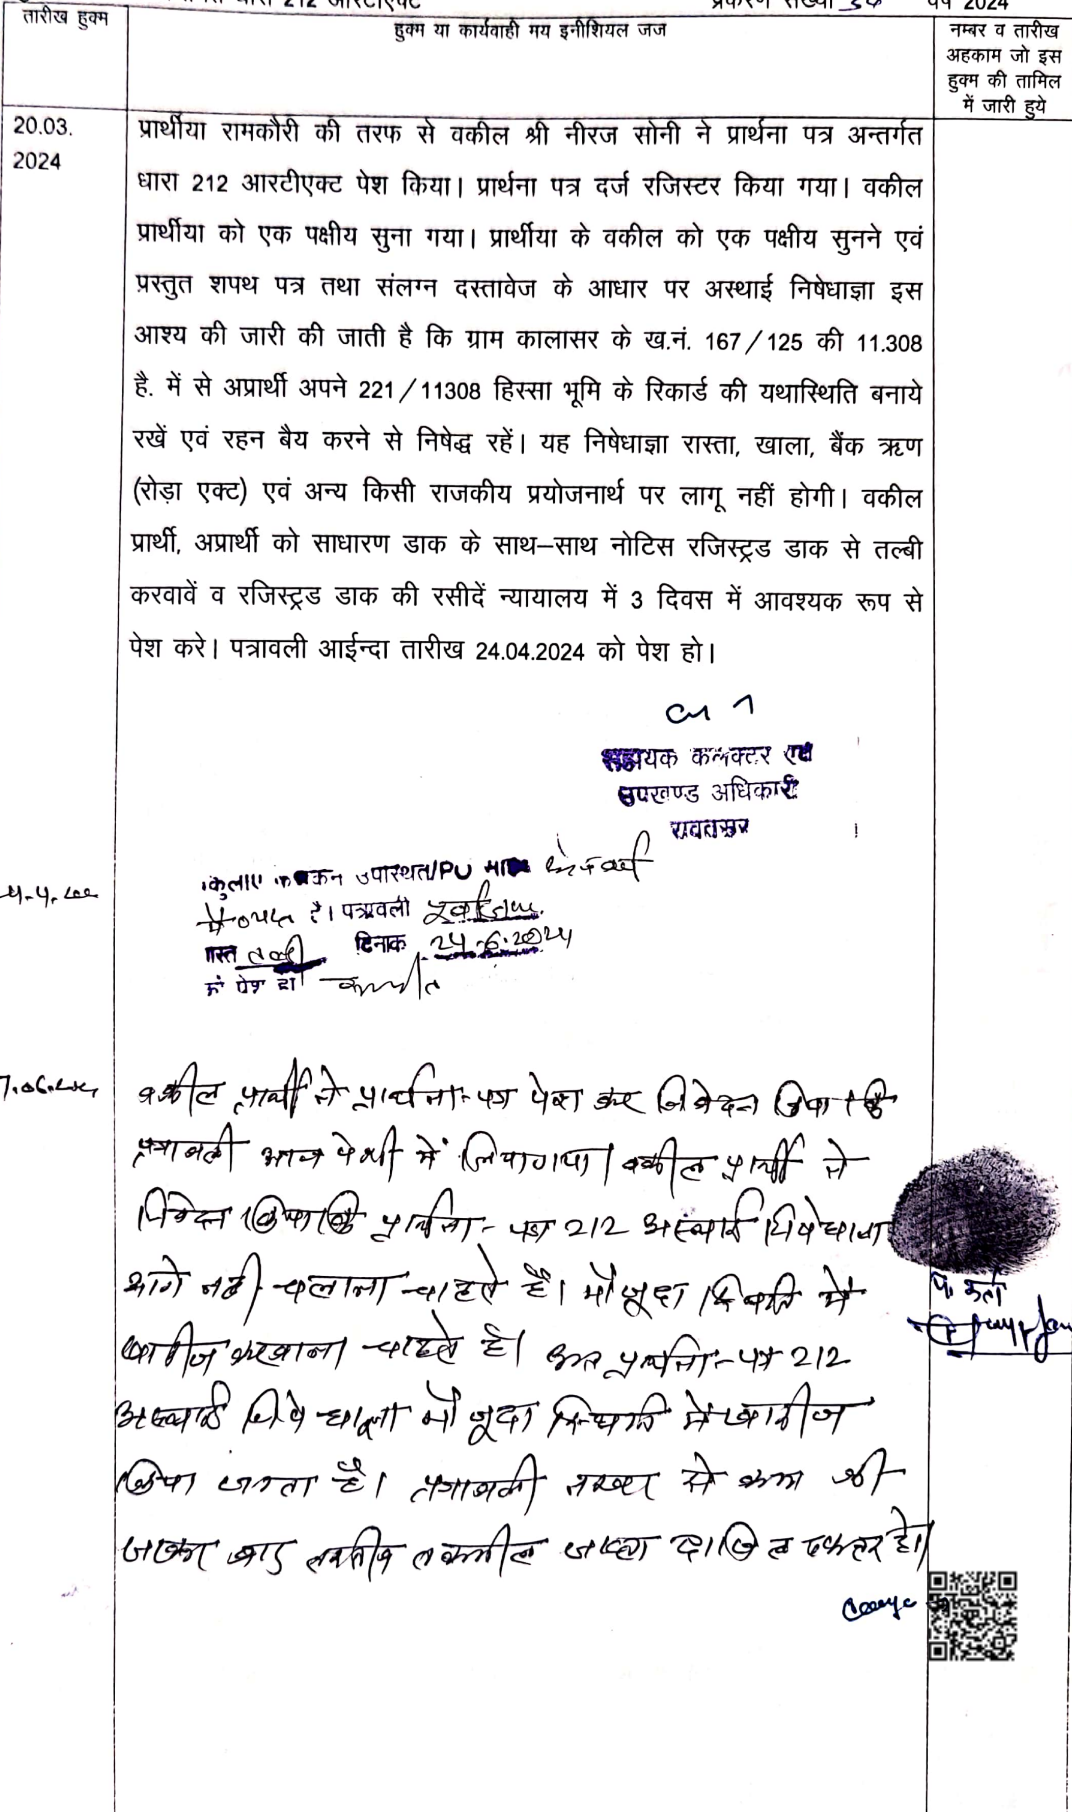 धारा 212 आरटीएक्ट प्रकरण संख्या वर्ष 2024
तारीख हुक्म
हुक्म या कार्यवाही मय इनीशियल जज
नम्बर व तारीख
अहकाम जो इस
हुक्म की तामिल
में जारी हुये
20.03.
2024
प्रार्थीया रामकौरी की तरफ से वकील श्री नीरज सोनी ने प्रार्थना पत्र अन्तर्गत
धारा 212 आरटीएक्ट पेश किया। प्रार्थना पत्र दर्ज रजिस्टर किया गया। वकील
प्रार्थीया को एक पक्षीय सुना गया। प्रार्थीया के वकील को एक पक्षीय सुनने एवं
प्रस्तुत शपथ पत्र तथा संलग्न दस्तावेज के आधार पर अस्थाई निषेधाज्ञा इस
आश्य की जारी की जाती है कि ग्राम कालासर के ख.नं. 167/125 की 11.308
है. में से अप्रार्थी अपने 221/11308 हिस्सा भूमि के रिकार्ड की यथास्थिति बनाये
रखें एवं रहन बैय करने से निषेद्ध रहें। यह निषेधाज्ञा रास्ता, खाला, बैंक ऋण
(रोड़ा एक्ट) एवं अन्य किसी राजकीय प्रयोजनार्थ पर लागू नहीं होगी। वकील
प्रार्थी, अप्रार्थी को साधारण डाक के साथ–साथ नोटिस रजिस्ट्रड डाक से तल्बी
करवावें व रजिस्ट्रड डाक की रसीदें न्यायालय में 3 दिवस में आवश्यक रूप से
पेश करे। पत्रावली आईन्दा तारीख 24.04.2024 को पेश हो।
सहायक कलक्टर एवं
उपखण्ड अधिकारी
रावतसर
उपस्थित/PO
है। पत्रावली
वास्ते तलबी दिनाक 24.6.2024
में पेश हो
वकील प्रार्थी ने प्रार्थना-पत्र पेश कर निवेदन किया कि
पत्रावली आज पेशी में लिया गया। वकील प्रार्थी ने
निवेदन किया कि प्रार्थना-पत्र 212 अस्थाई निषेधाज्ञा
आगे नही चलाना चाहते है। मौजूदा स्थिति में
खारीज करवाना चाहते है। अतः प्रार्थना-पत्र 212
अस्थाई निषेधाज्ञा मौजूदा स्थिति में खारीज
किया जाता है। पत्रावली नम्बर से कम की
जाकर बाद तकमील दाखिल दफ्तर हो।